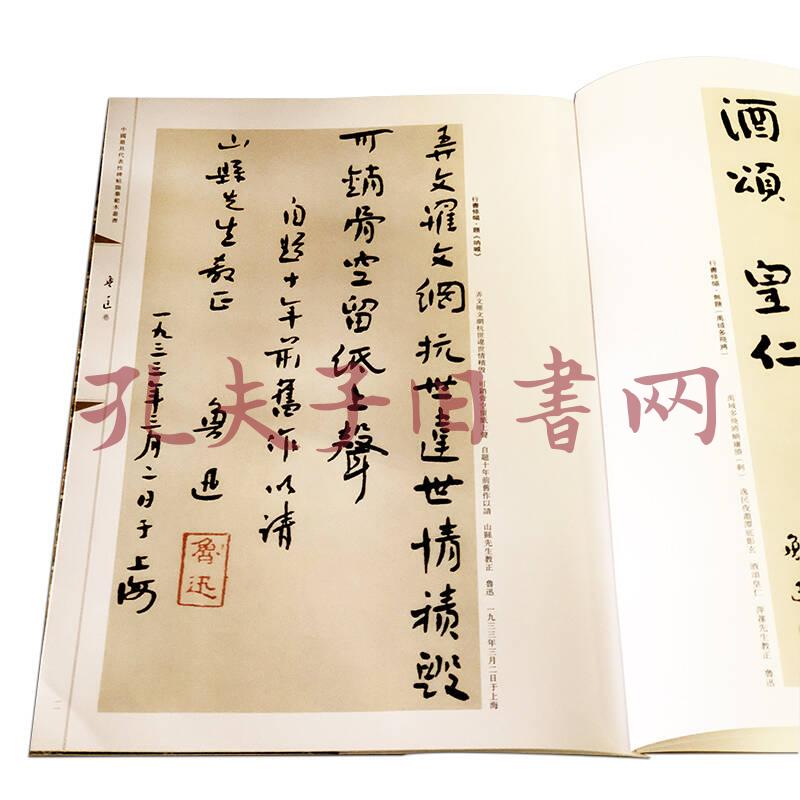 酒頌 皇仁
行書條幅·無題（禹域多飛將）
禹域多飛將蝸廬勝（剩）逸民夜邀潭底影玄酒頌皇仁 萍蓀先生教正 魯迅
行書條幅·題《吶喊》
弄文罹文網抗世違世情積毀可銷骨空留紙上聲 自題十年前舊作以請 山縣先生教正 魯迅 一九三三年三月二日于上海
弄文罹文網抗世違世情積毀
可銷骨空留紙上聲
自題十年前舊作以請
山縣先生教正
魯迅
一九三三年三月二日于上海
魯迅
中國最具代表性碑帖臨摹範本叢書
魯迅 卷
一一
孔夫子旧書网